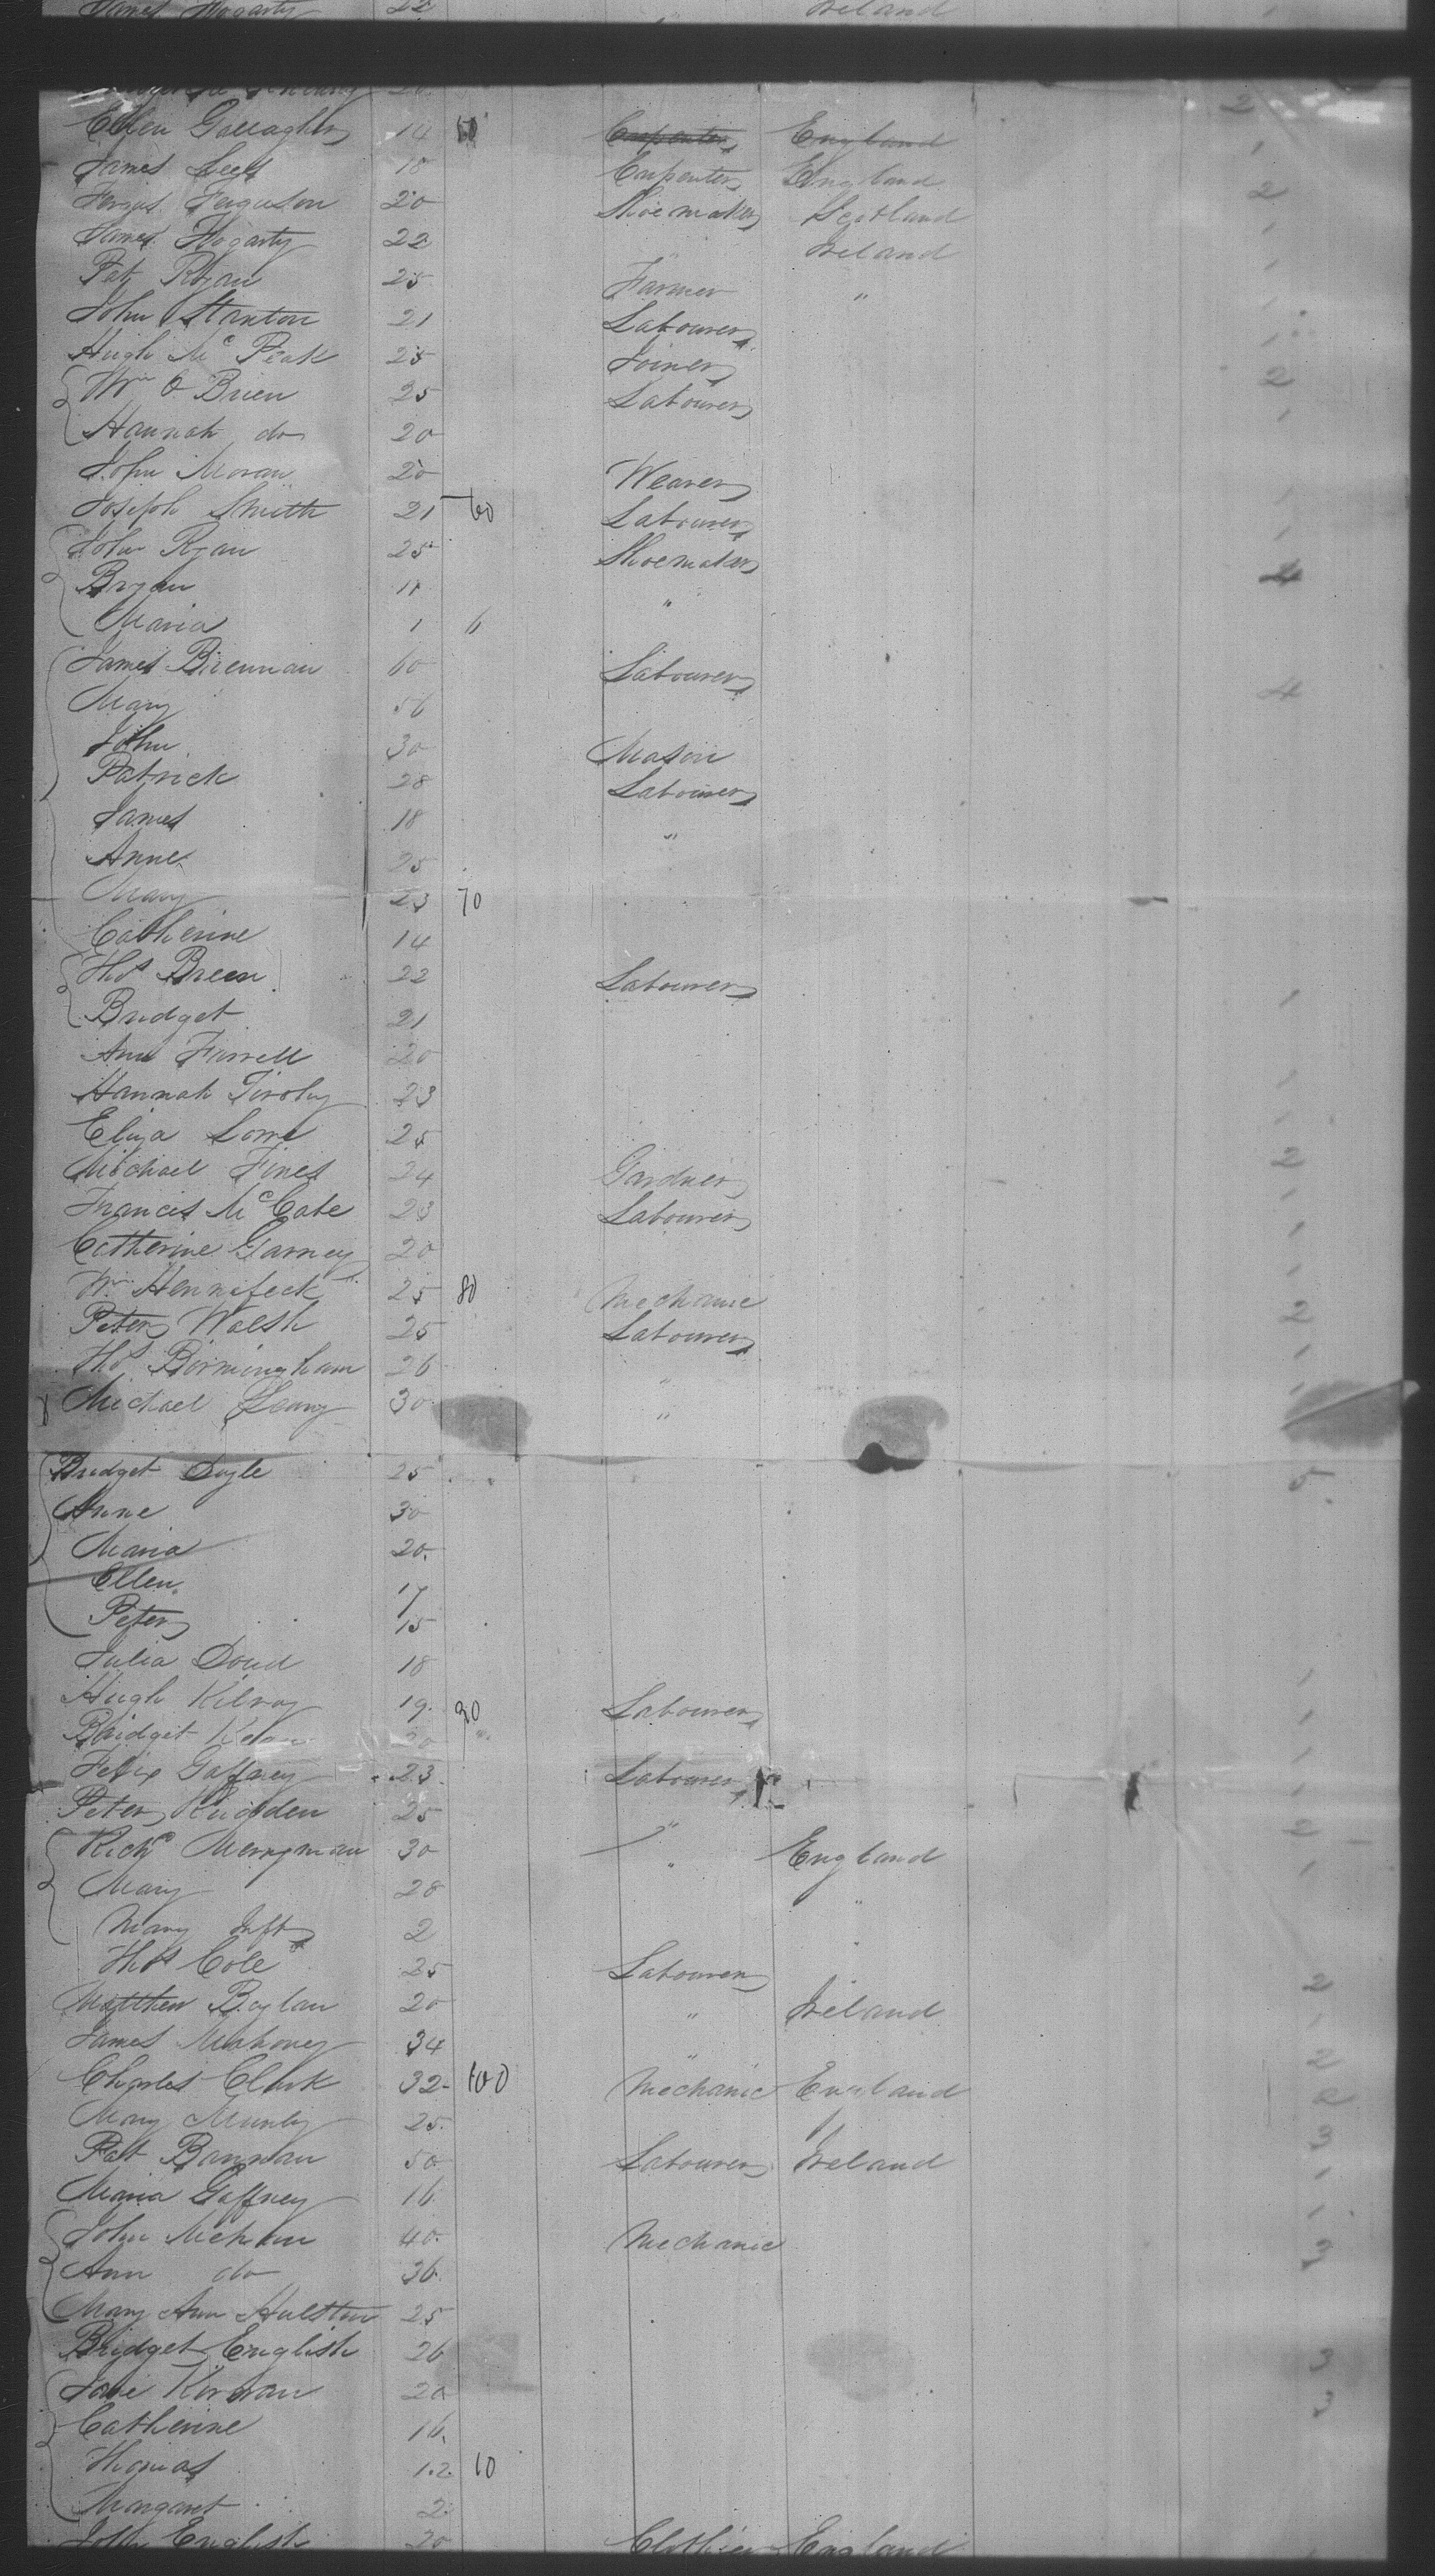 James Hogarty 22 Ireland
20 2
Ellen Gallagher 14 50 Carpenter England
James Lees 18 Carpenter England 1
Fergus Ferguson 20 Shoemaker Scotland 2
James Hogarty 22 " Ireland 1
Pat Ryan 25 Farmer " 1
John Stanton 21 Labourer 1
Hugh Mc Peak 25 Joiner 1
Wm O Brien 25 Labourer 2
Hannah do 20 1
John Moran 20 Weaver
Joseph Smith 21 60 Labourer 1
John Ryan 25 Shoemaker 1
Bryan 11 " 4
Maria 1 6
James Brennan 60 Labourer
Mary 56 4
John 30 Mason
Patrick 28 Labourer
James 18 "
Anne 25
Mary 23 70
Catherine 14
Thos Breen 22 Labourer
Bridget 21 1
Ann Farrell 20
Hannah 23 1
Eliza Lowe 25 1
Michael Fines 24 Gardner 2
Francis Mc Cabe 23 Labourer 1
Catherine Garney 20 1
Wm Hennefeck 25 80 Mechanic 1
Peter Walsh 25 Labourer 2
Thos Birmingham 26 " 1
Michael Leary 30 " 1
Bridget Doyle 25 5
Anne 30
Maria 20
Ellen 17
Peter 15
Julia Doud 18
Hugh Kilroy 19 90 Labourer 1
Bridget 20 1
Felix Gaffney 23 Labourer 1
Peter Rudden 25 " 1
Richd Merryman 30 " England 2
Mary 28 " 1
Mary Inft 2 "
Thos Cole 25 Labourer
Matthew Boylan 20 " Ireland 2
James Mahoney 34 " 1
Charles Clark 32 100 Mechanic England 2
Mary Munly 25 2
Pat Bannan 50 Labourer Ireland 3
Maria Gaffney 16 1
John Mehan 40 Mechanic 1
Ann do 36 3
Mary Ann Hulston 25
Bridget English 26 3
Jane Kirwan 20 3
Catherine 16
Thomas 12 10
Margaret 2
John English 20 Clothier England